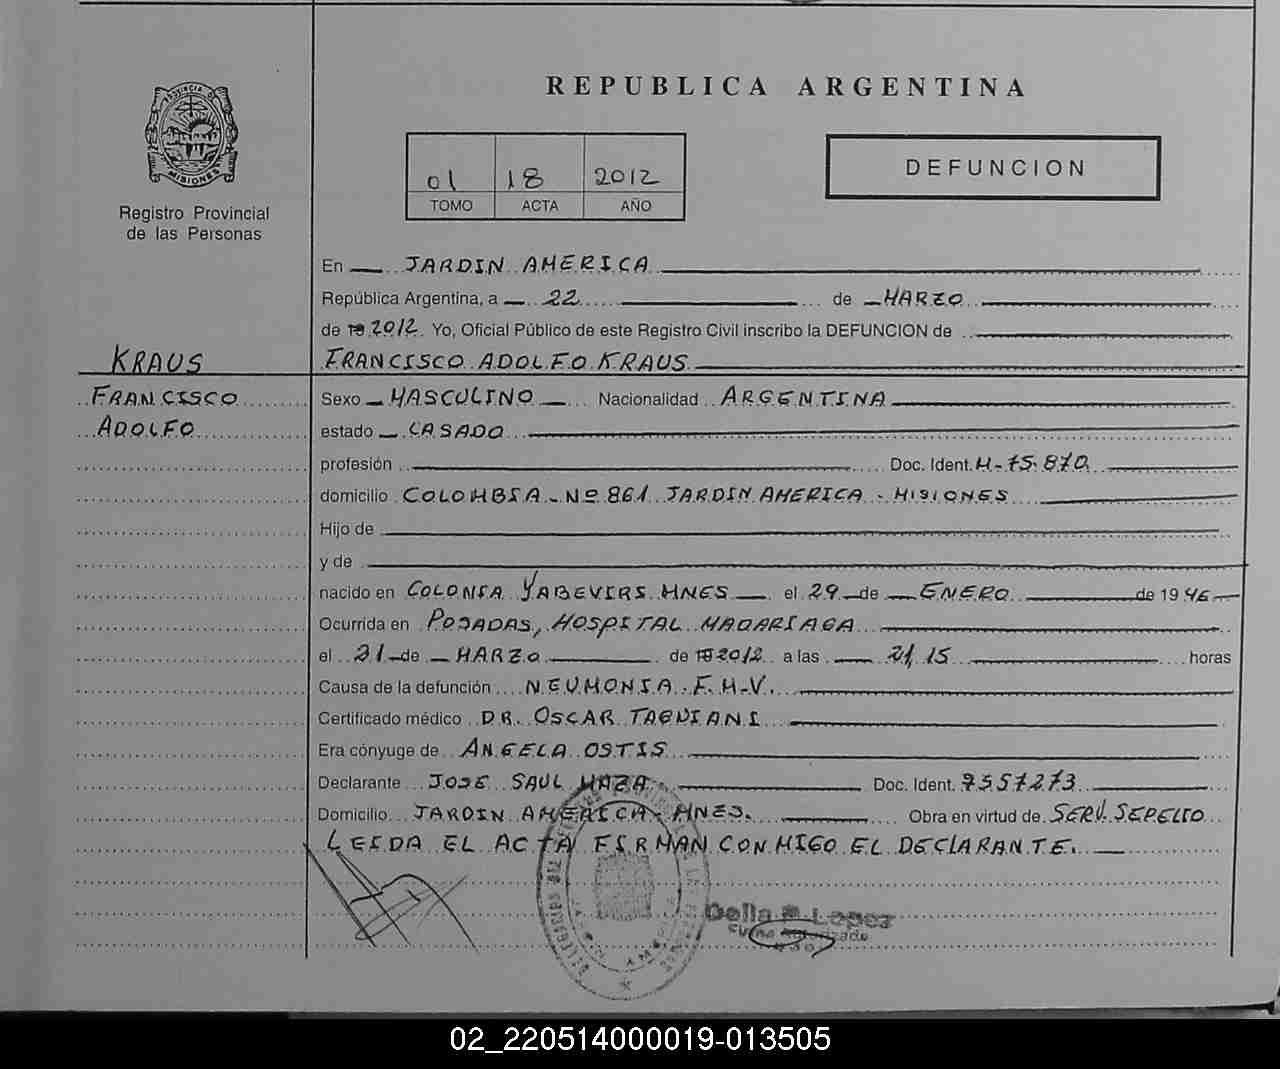 PROVINCIA DE
MISIONES
Registro Provincial
de las Personas
REPUBLICA ARGENTINA
01 18 2012
TOMO ACTA AÑO
DEFUNCION
En JARDIN AMERICA
República Argentina, a 22 de MARZO
de 19 2012. Yo, Oficial Público de este Registro Civil inscribo la DEFUNCION de
KRAUS
FRANCISCO
ADOLFO
FRANCISCO ADOLFO KRAUS
Sexo MASCULINO Nacionalidad ARGENTINA
estado CASADO
profesión Doc. Ident. M-75.870
domicilio COLOMBIA - Nº 861 JARDIN AMERICA - MISIONES
Hijo de
y de
nacido en COLONIA YABEVIRS MNES el 29 de ENERO de 1946
Ocurrida en POSADAS, HOSPITAL MADARIAGA
el 21 de MARZO de 19 2012 a las 21,15 horas
Causa de la defunción NEUMONIA. F.M.V.
Certificado médico DR. OSCAR
Era cónyuge de ANGELA OSTIS
Declarante JOSE SAUL MAZA Doc. Ident. 7557273
Domicilio JARDIN AMERICA - MNES. Obra en virtud de SERV. SEPELIO
LEIDA EL ACTA FIRMAN CONMIGO EL DECLARANTE.
Lopez
02_220514000019-013505